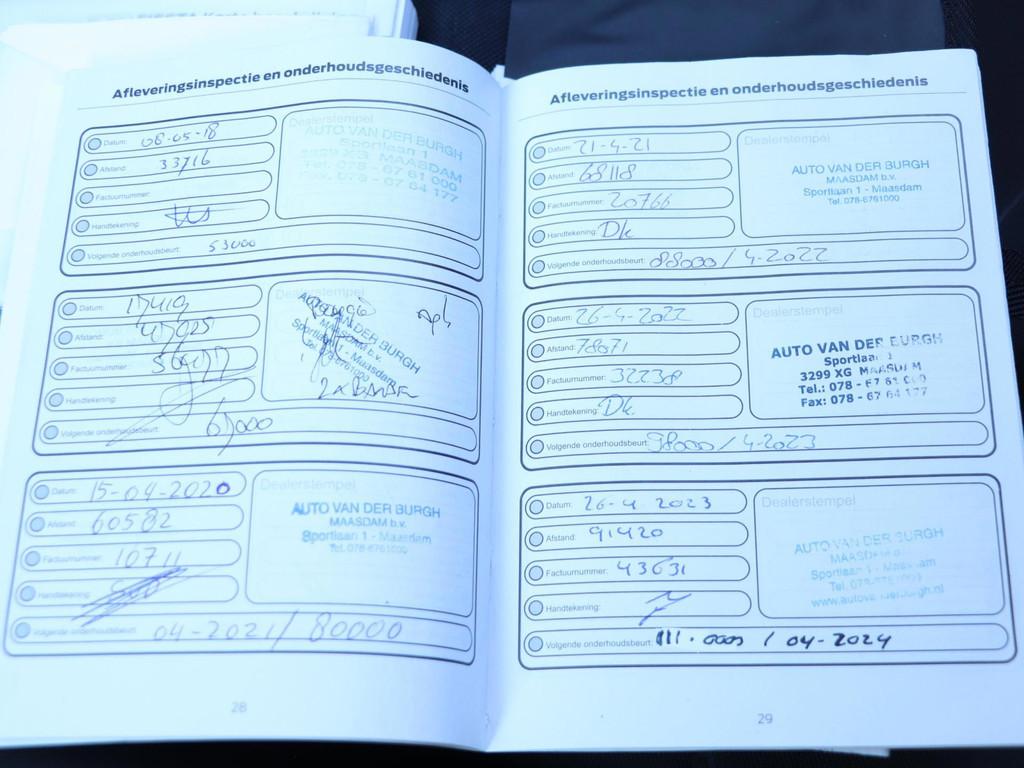 Afleveringsinspectie en onderhoudsgeschiedenis
Datum: 08-05-18
Afstand: 33716
Factuurnummer:
Handtekening:
Volgende onderhoudsbeurt: 53000
Dealerstempel
AUTO VAN DER BURGH
Sportlaan 1
3299 XG MAASDAM
Tel. 078 - 67 61 000
Fax. 078 - 67 64 177
Datum:
Afstand:
Factuurnummer:
Handtekening:
Volgende onderhoudsbeurt:
Dealerstempel
AUTO VAN DER BURGH
MAASDAM b.v.
Sportlaan 1 - Maasdam
Tel. 078-6761000
Datum: 15-04-2020
Afstand: 60582
Factuurnummer: 10711
Handtekening:
Volgende onderhoudsbeurt: 04-2021/ 80000
Dealerstempel
AUTO VAN DER BURGH
MAASDAM b.v.
Sportlaan 1 - Maasdam
Tel. 078-6761000
28
Afleveringsinspectie en onderhoudsgeschiedenis
Datum: 21-4-21
Afstand: 68118
Factuurnummer: 20766
Handtekening: Dk
Volgende onderhoudsbeurt: 88000 / 4-2022
Dealerstempel
AUTO VAN DER BURGH
MAASDAM b.v.
Sportlaan 1 - Maasdam
Tel. 078-6761000
Datum: 26-4-2022
Afstand: 78071
Factuurnummer: 32238
Handtekening: Dk
Volgende onderhoudsbeurt: 98000 / 4-2023
Dealerstempel
AUTO VAN DER BURGH
Sportlaan 1
3299 XG MAASDAM
Tel.: 078 - 67 61 000
Fax: 078 - 67 64 177
Datum: 26-4 2023
Afstand: 91420
Factuurnummer: 43631
Handtekening:
Volgende onderhoudsbeurt: 111.000 / 04-2024
Dealerstempel
AUTO VAN DER BURGH
MAASDAM b.v.
Sportlaan 1 - Maasdam
www.autovanderburgh.nl
29